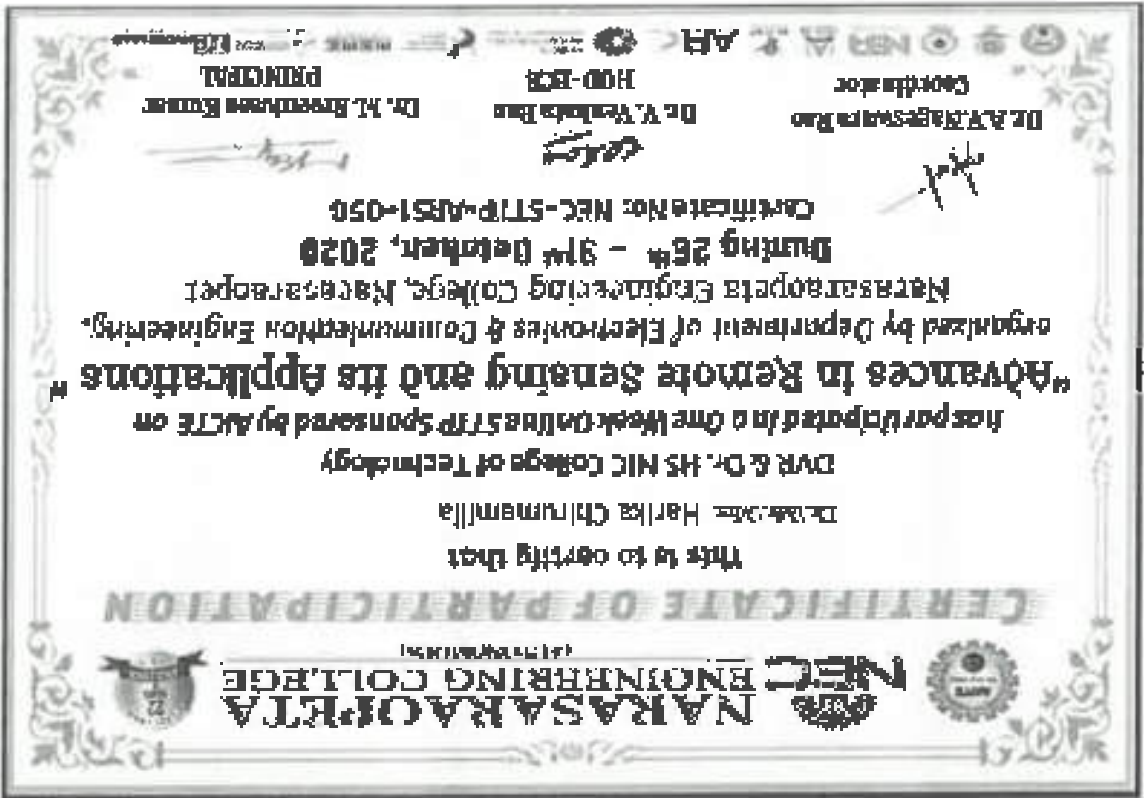 NARASARAOPETA
NEC ENGINEERING COLLEGE
CERTIFICATE OF PARTICIPATION
This is to certify that
Harika Chirumamilla
DVR & Dr. HS MIC College of Technology
has participated in a One Week Online STTP Sponsored by AICTE on
"Advances in Remote Sensing and its Applications "
organized by Department of Electronics & Communication Engineering,
Narasaraopeta Engineering College, Narasaraopet
During 26th – 31st October, 2020
Certificate No: NEC-STTP-ARS1-050
Dr. A.V. Nageswara Rao
Coordinator
Dr. V. Venkata Rao
HOD-ECE
Dr. M. Sreenivasa Kumar
PRINCIPAL